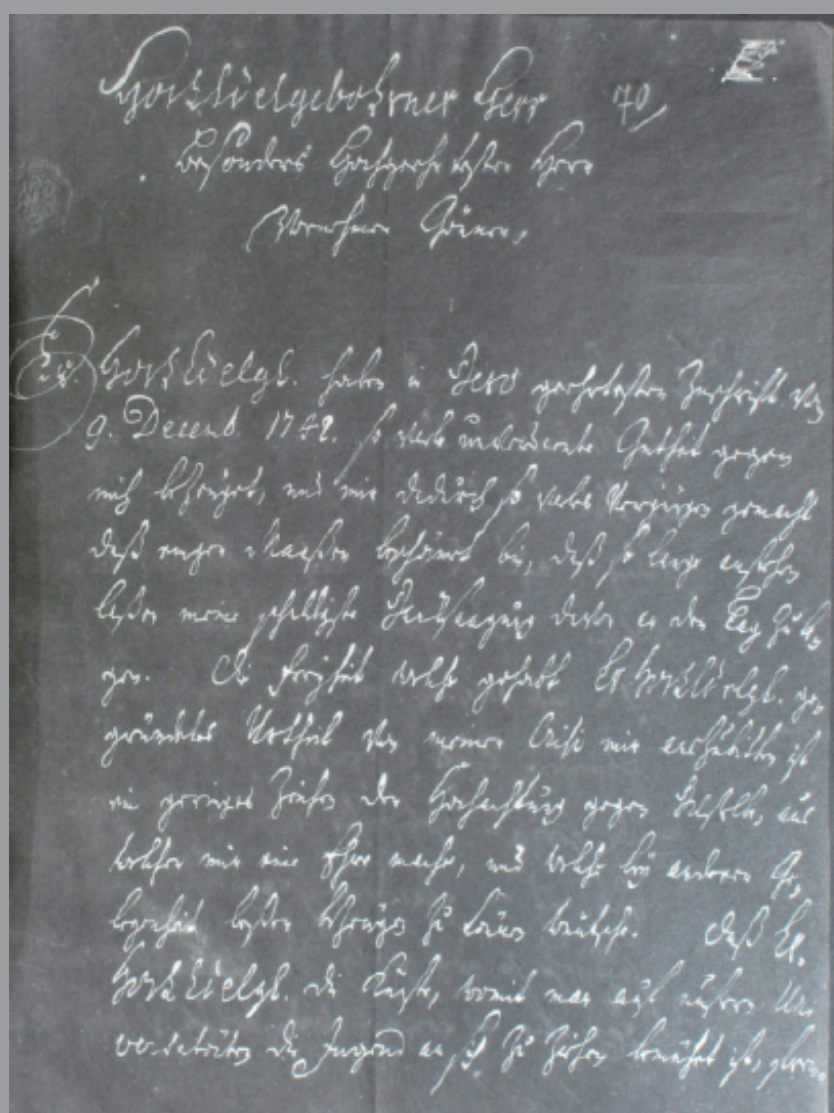 HochEdelgebohrner Herr 70/
besonders Hochgeehrtester Herr
Vornehmer Gönner,
Ew. HochEdelgb. haben in Dero geehrtesten Zuschrifft vom
9. Decemb. 1742. so viele unverdiente Gütheit gegen
mich bezeuget, und mir dadurch so vieles Vergnügen gemacht
daß einiger Maaßen beschämt bin, daß so lange anstehen
laßen meine schuldigste Dancksagung davor an den Tag zu le
gen. Die Freyheit welche gehabt Ew HochEdelgb. ge
gründetes Urtheil von meiner mir ist
ein geringes Zeichen der Hochachtung gegen Dieselbe, aus
welcher mir eine Ehre mache, und welche bey andern Ge
legenheit beßer bezeugen zu können wünsche. Daß Ew.
HochEdelgb. die Künste, womit man auf unsern Uni
versitäten die Jugend an sich zu ziehen bemühet ist,